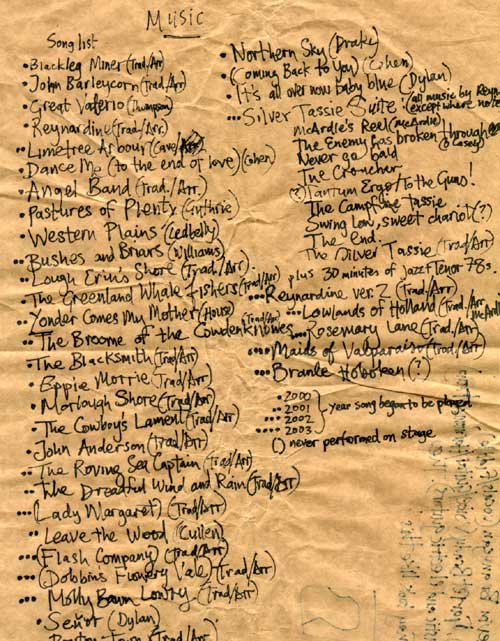 Music
Song list
• Blackleg Miner (Trad/Arr)
• John Barleycorn (Trad/Arr)
• Great Valerio (Thompson)
• Reynardine (Trad/Arr.)
•• Limetree Arbour (Cave/
• Dance Me (to the end of love) (Cohen)
• Angel Band (Trad./Arr.)
• Pastures of Plenty (Guthrie)
• Western Plains (Ledbelly)
•• Bushes and Briars (Williams)
•• Lough Erin's Shore (Trad/Arr)
•• The Greenland Whale Fishers (Trad/Arr)
•• Yonder Comes My Mother (House) (Trad/Arr)
•• The Broome of the Cowdenknowes
• The Blacksmith (Trad/Arr)
• Eppie Morrie (Trad/Arr)
• Morlough Shore (Trad/Arr)
• The Cowboy's Lament (Trad/Arr)
• John Anderson (Trad/Arr)
•• The Roving Sea Captain (Trad/Arr)
•• The Dreadful Wind and Rain (Trad/Arr)
••• (Lady Margaret) (Trad/Arr)
•• Leave the Wood (Cullen)
••• (Flash Company) (Trad/Arr)
••• (Dobbins Flowery Vale) (Trad/Arr)
••• Molly Bawn Lowry (Trad/Arr)
• Señor (Dylan)
(Trad/Arr)
• Northern Sky (Drake)
• (Coming Back to You) (Cohen)
• It's all over now baby blue (Dylan)
••• Silver Tassie Suite: (all music by
(except where
McArdle's Reel (McArdle)
The Enemy has broken through (O'Casey)
Never go bald
The Croucher
(?) Tantum Ergo/To the Guns!
The Campfire Tassie
Swing Low, sweet chariot (?)
The end.
The Silver Tassie (Trad/Arr)
plus 30 minutes of jazz + Tenor 78s.
••• Reynardine ver. 2 (Trad/Arr)
••• Lowlands of Holland (Trad/Arr,
••• Rosemary Lane (Trad/Arr)
•••• Maids of Valparaiso (Trad/Arr)
•••• Branle Hoboken (?)
• 2000
•• 2001
••• 2002
•••• 2003
year song began to be played
() never performed on stage